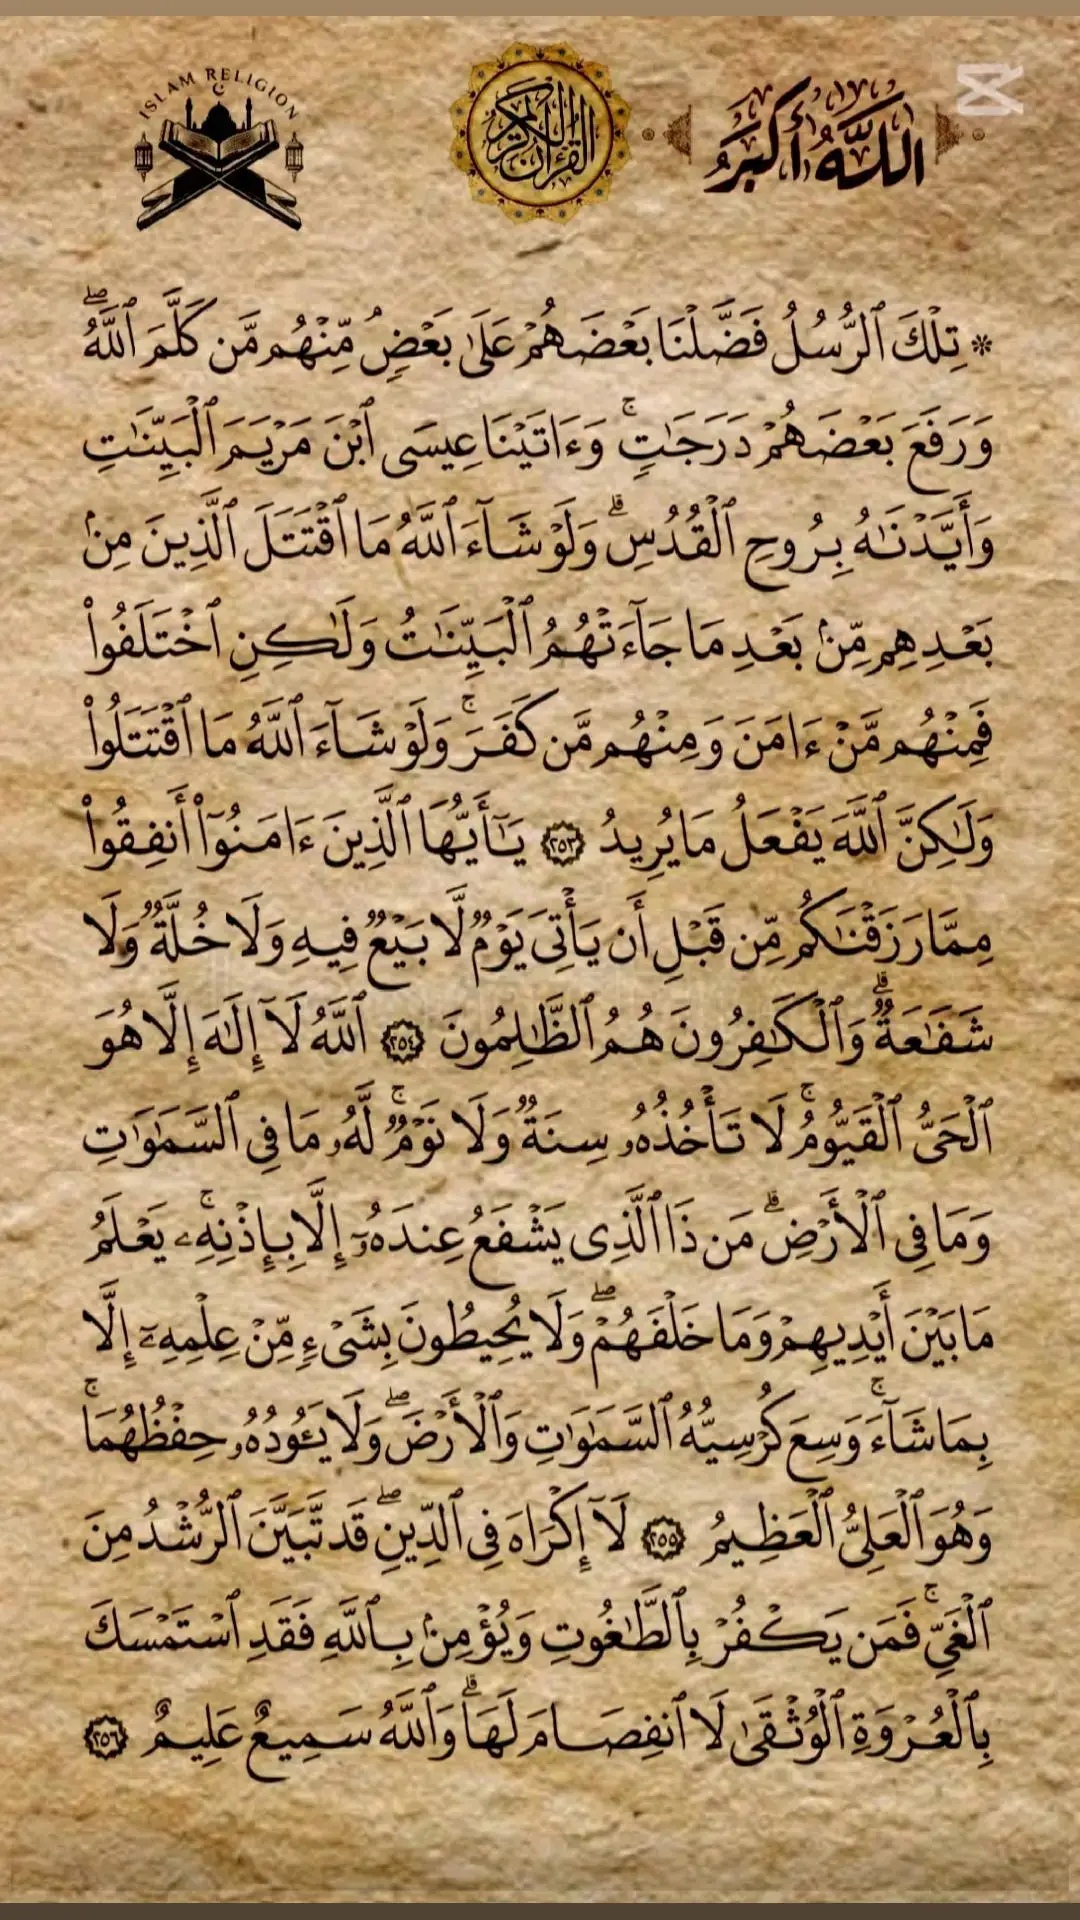 ISLAM RELIGION
القرآن الكريم
اللَّهُ أَكْبَرُ
* تِلْكَ ٱلرُّسُلُ فَضَّلْنَا بَعْضَهُمْ عَلَىٰ بَعْضٍۘ مِّنْهُم مَّن كَلَّمَ ٱللَّهُۖ
وَرَفَعَ بَعْضَهُمْ دَرَجَٰتٍۚ وَءَاتَيْنَا عِيسَى ٱبْنَ مَرْيَمَ ٱلْبَيِّنَٰتِ
وَأَيَّدْنَٰهُ بِرُوحِ ٱلْقُدُسِۗ وَلَوْ شَآءَ ٱللَّهُ مَا ٱقْتَتَلَ ٱلَّذِينَ مِنۢ
بَعْدِهِم مِّنۢ بَعْدِ مَا جَآءَتْهُمُ ٱلْبَيِّنَٰتُ وَلَٰكِنِ ٱخْتَلَفُوا۟
فَمِنْهُم مَّنْ ءَامَنَ وَمِنْهُم مَّن كَفَرَۚ وَلَوْ شَآءَ ٱللَّهُ مَا ٱقْتَتَلُوا۟
وَلَٰكِنَّ ٱللَّهَ يَفْعَلُ مَا يُرِيدُ ٢٥٣ يَٰٓأَيُّهَا ٱلَّذِينَ ءَامَنُوٓا۟ أَنفِقُوا۟
مِمَّا رَزَقْنَٰكُم مِّن قَبْلِ أَن يَأْتِىَ يَوْمٌ لَّا بَيْعٌ فِيهِ وَلَا خُلَّةٌ وَلَا
شَفَٰعَةٌۗ وَٱلْكَٰفِرُونَ هُمُ ٱلظَّٰلِمُونَ ٢٥٤ ٱللَّهُ لَآ إِلَٰهَ إِلَّا هُوَ
ٱلْحَىُّ ٱلْقَيُّومُۚ لَا تَأْخُذُهُۥ سِنَةٌ وَلَا نَوْمٌۚ لَّهُۥ مَا فِى ٱلسَّمَٰوَٰتِ
وَمَا فِى ٱلْأَرْضِۗ مَن ذَا ٱلَّذِى يَشْفَعُ عِندَهُۥٓ إِلَّا بِإِذْنِهِۦۚ يَعْلَمُ
مَا بَيْنَ أَيْدِيهِمْ وَمَا خَلْفَهُمْۖ وَلَا يُحِيطُونَ بِشَىْءٍ مِّنْ عِلْمِهِۦٓ إِلَّا
بِمَا شَآءَۚ وَسِعَ كُرْسِيُّهُ ٱلسَّمَٰوَٰتِ وَٱلْأَرْضَۖ وَلَا يَـُٔودُهُۥ حِفْظُهُمَاۚ
وَهُوَ ٱلْعَلِىُّ ٱلْعَظِيمُ ٢٥٥ لَآ إِكْرَاهَ فِى ٱلدِّينِۖ قَد تَّبَيَّنَ ٱلرُّشْدُ مِنَ
ٱلْغَىِّۚ فَمَن يَكْفُرْ بِٱلطَّٰغُوتِ وَيُؤْمِنۢ بِٱللَّهِ فَقَدِ ٱسْتَمْسَكَ
بِٱلْعُرْوَةِ ٱلْوُثْقَىٰ لَا ٱنفِصَامَ لَهَاۗ وَٱللَّهُ سَمِيعٌ عَلِيمٌ ٢٥٦